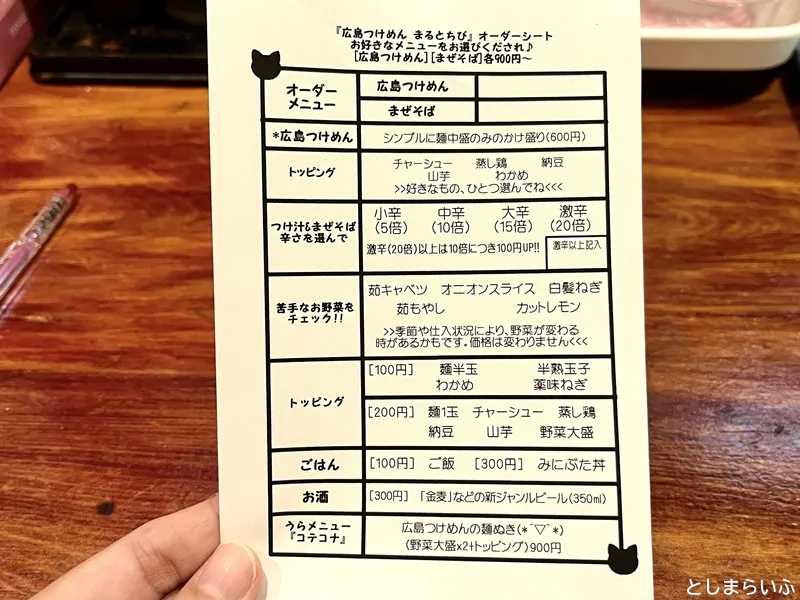 『広島つけめん まるとちび』オーダーシート
お好きなメニューをお選びくだされ♪
[広島つけめん][まぜそば]各900円~
オーダー
メニュー
広島つけめん
まぜそば
*広島つけめん
シンプルに麺中盛のみのかけ盛り(600円)
トッピング
チャーシュー 蒸し鶏 納豆
山芋 わかめ
>>好きなもの、ひとつ選んでね<<<
つけ汁&まぜそば
辛さを選んで
小辛 中辛 大辛 激辛
(5倍) (10倍) (15倍) (20倍)
激辛(20倍)以上は10倍につき100円UP!!
激辛以上記入
苦手なお野菜を
チェック!!
茹キャベツ オニオンスライス 白髪ねぎ
茹もやし カットレモン
>>季節や仕入状況により、野菜が変わる
時があるかもです。価格は変わりません<<<
トッピング
[100円] 麺半玉 半熟玉子
わかめ 薬味ねぎ
[200円] 麺1玉 チャーシュー 蒸し鶏
納豆 山芋 野菜大盛
ごはん
[100円] ご飯 [300円] みにぶた丼
お酒
[300円] 「金麦」などの新ジャンルビール(350ml)
うらメニュー
『コテコナ』
広島つけめんの麺ぬき(*´▽`*)
(野菜大盛x2+トッピング)900円
としまらいふ